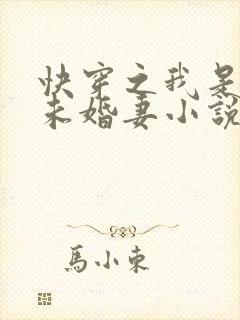 快穿之我是
未婚妻小說
馬小東